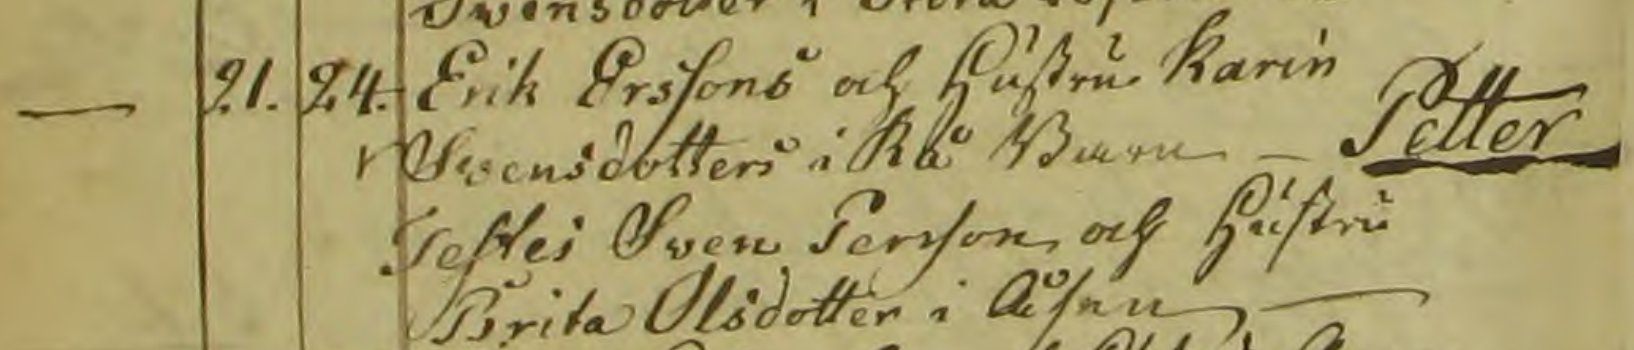 Swensdotter i Stora
21. 24. Erik Erssons och Hustru Karin
Swensdotters i Rå Barn — Petter
Testes Swen Persson och Hustru
Brita Olsdotter i Åsen